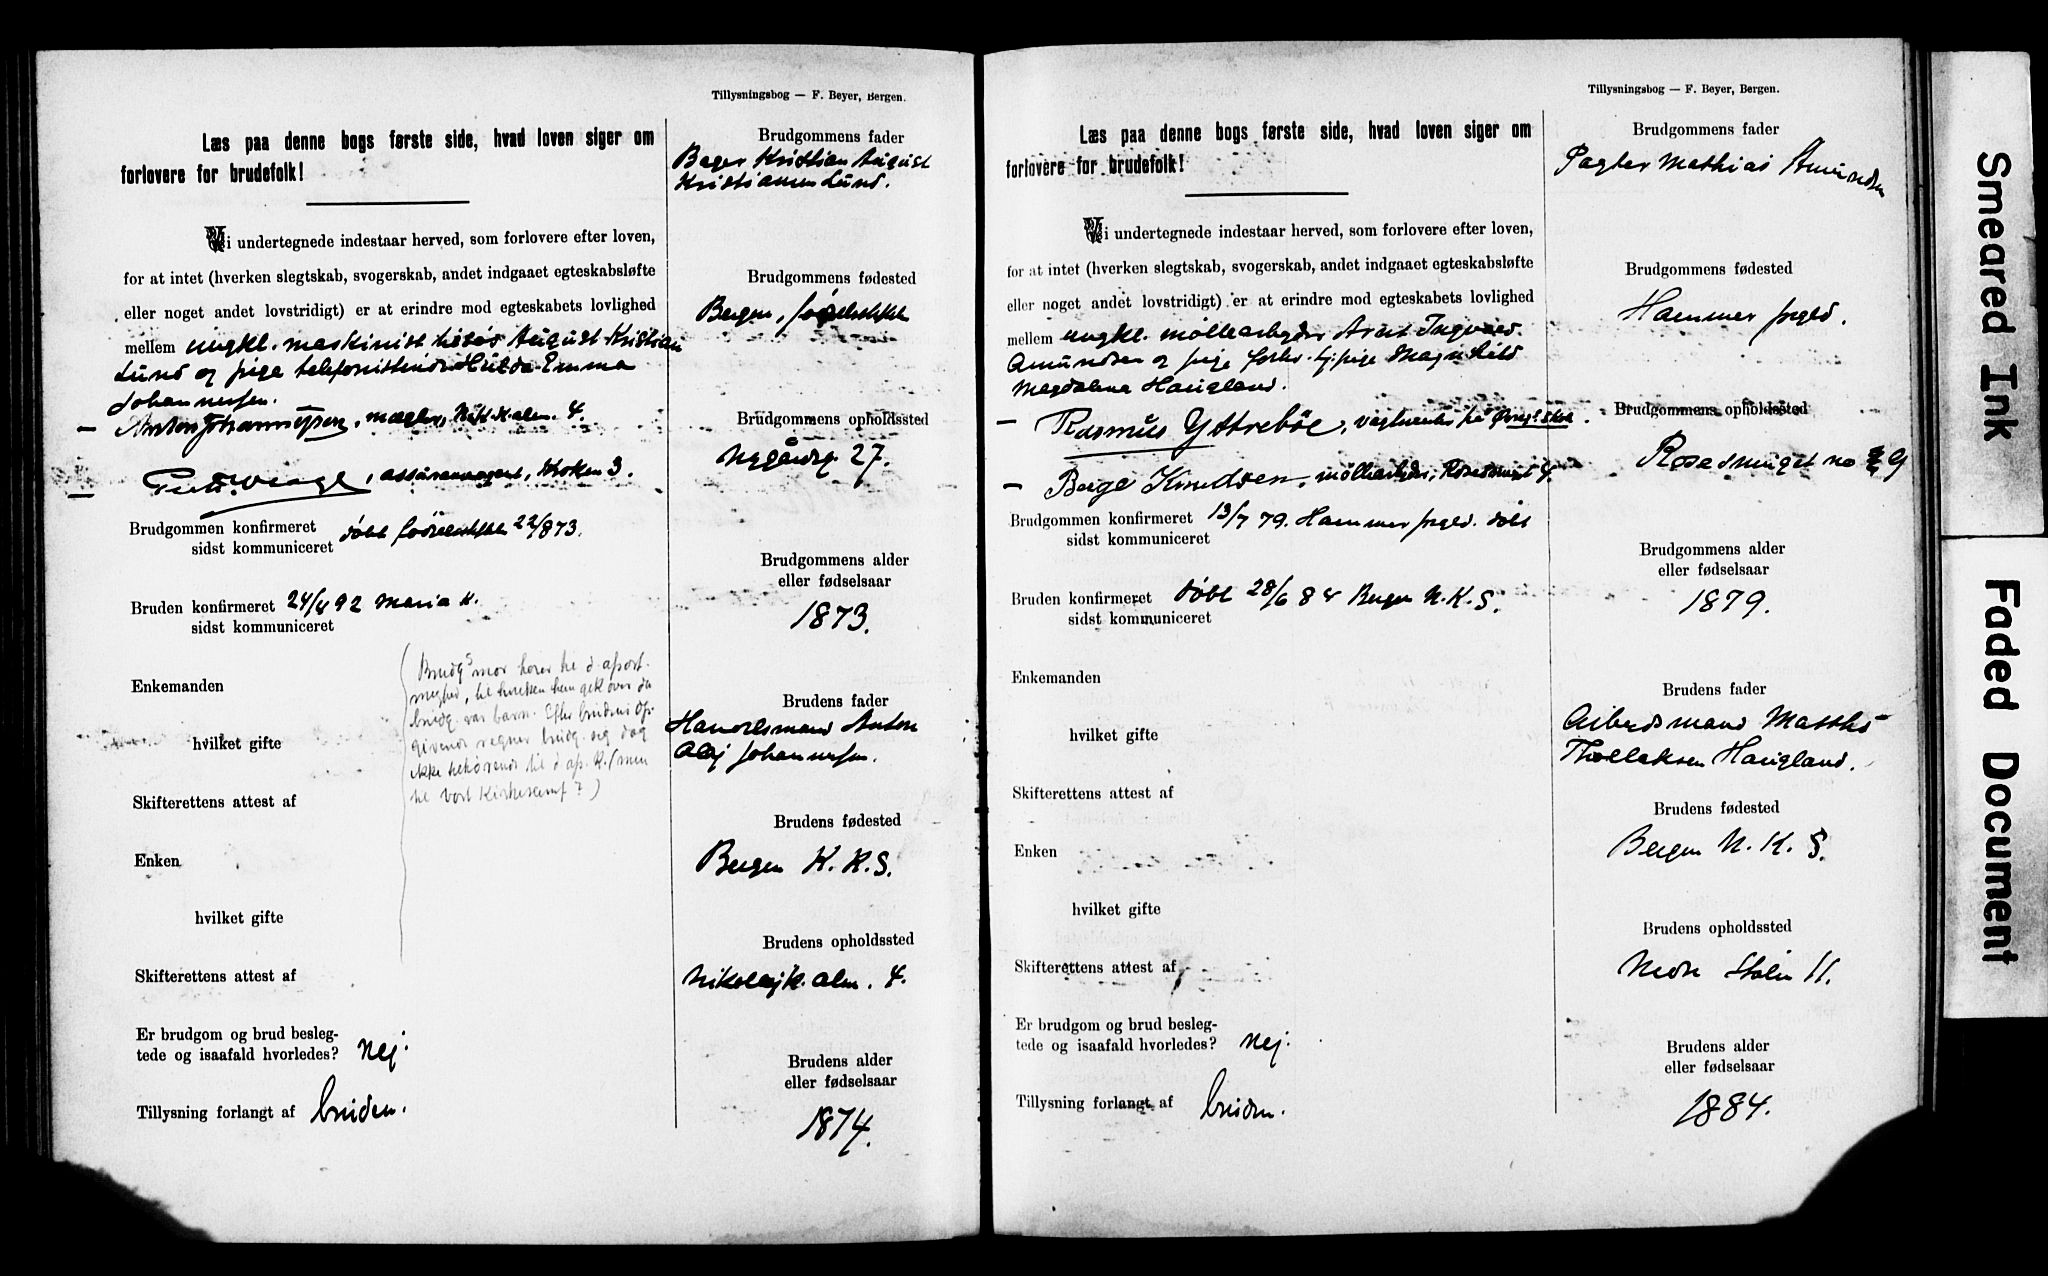 Tillysningsbog — F. Beyer, Bergen.
Læs paa denne bogs første side, hvad loven siger om
forlovere for brudefolk!
Vi undertegnede indestaar herved, som forlovere efter loven,
for at intet (hverken slegtskab, svogerskab, andet indgaaet egteskabsløfte
eller noget andet lovstridigt) er at erindre mod egteskabets lovlighed
mellem ungkl. maskinist August Kristian
Lund og pige telefonistinde Hulda Emma
Johannessen.
Anton Johannessen, mægler, Nik.k.alm. 4.
assuranceagent, Kroken 3.
Brudgommen konfirmeret
sidst kommuniceret døbt 22/8 73.
Bruden konfirmeret 24/4 92 Maria K.
sidst kommuniceret
(Brudgs mor hører til d. apost.
menighed, til hvilken hun gik over da
brudg. var barn. Efter brudens op-
givende regner brudg. sig dog
ikke hørende til d. ap. K. (men
til vort Kirkesamf?)
Enkemanden
hvilket gifte
Skifterettens attest af
Enken
hvilket gifte
Skifterettens attest af
Er brudgom og brud besleg-
tede og isaafald hvorledes? Nej.
Tillysning forlangt af bruden.
Brudgommens fader
Bager Kristian August
Kristiansen Lund.
Brudgommens fødested
Bergen,
Brudgommens opholdssted
Nygårdsg. 27.
Brudgommens alder
eller fødselsaar
1873.
Brudens fader
Handelsmand Anton
Olaj Johannessen.
Brudens fødested
Bergen K. K. S.
Brudens opholdssted
Nikolajk. alm. 4.
Brudens alder
eller fødselsaar
1874.
Tillysningsbog — F. Beyer, Bergen.
Læs paa denne bogs første side, hvad loven siger om
forlovere for brudefolk!
Vi undertegnede indestaar herved, som forlovere efter loven,
for at intet (hverken slegtskab, svogerskab, andet indgaaet egteskabsløfte
eller noget andet lovstridigt) er at erindre mod egteskabets lovlighed
mellem ungkl. møllearbeyder Arnt Ingvard
Amundsen og pige forhv. tj.pige Magnhild
Magdalena Haugland.
Rasmus Yttrebøe, vagtmester på
Berge Knudsen, møllearbeyder, Rosesmuget 4.
Brudgommen konfirmeret 13/7 79. Hammer prgld. døbt
sidst kommuniceret
Bruden konfirmeret døbt 28/6 84 Bergen N. K. S.
sidst kommuniceret
Enkemanden
hvilket gifte
Skifterettens attest af
Enken
hvilket gifte
Skifterettens attest af
Er brudgom og brud besleg-
tede og isaafald hvorledes? Nej.
Tillysning forlangt af bruden.
Brudgommens fader
Pagter Mathias Amundsen
Brudgommens fødested
Hammer prgld.
Brudgommens opholdssted
Rosesmuget no 9
Brudgommens alder
eller fødselsaar
1879.
Brudens fader
Arbeidsmand Matthis
Thollaksen Haugland.
Brudens fødested
Bergen N. K. S.
Brudens opholdssted
Nedre Stølen 11.
Brudens alder
eller fødselsaar
1884.
Smeared Ink
Faded Document